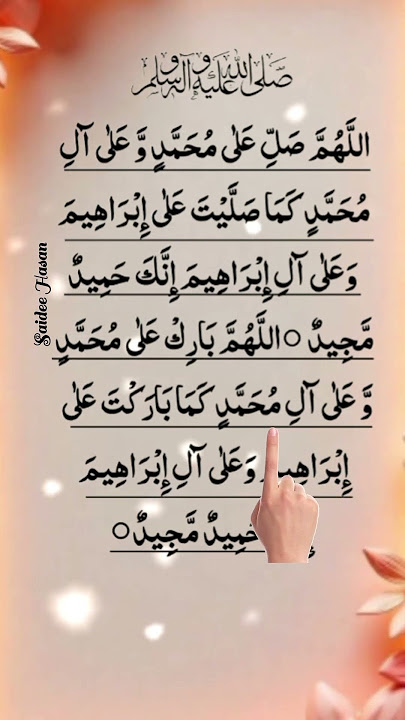 صَلَّى اللّٰهُ عَلَيْهِ وَآلِهٖ وَسَلَّمَ
اللَّهُمَّ صَلِّ عَلٰى مُحَمَّدٍ وَّ عَلٰى آلِ
مُحَمَّدٍ كَمَا صَلَّيْتَ عَلٰى إِبْرَاهِيمَ
وَعَلٰى آلِ إِبْرَاهِيمَ إِنَّكَ حَمِيدٌ
مَّجِيدٌ ○ اللَّهُمَّ بَارِكْ عَلٰى مُحَمَّدٍ
وَّ عَلٰى آلِ مُحَمَّدٍ كَمَا بَارَكْتَ عَلٰى
إِبْرَاهِيمَ وَعَلٰى آلِ إِبْرَاهِيمَ
حَمِيدٌ مَّجِيدٌ ○
Saidee Hasan